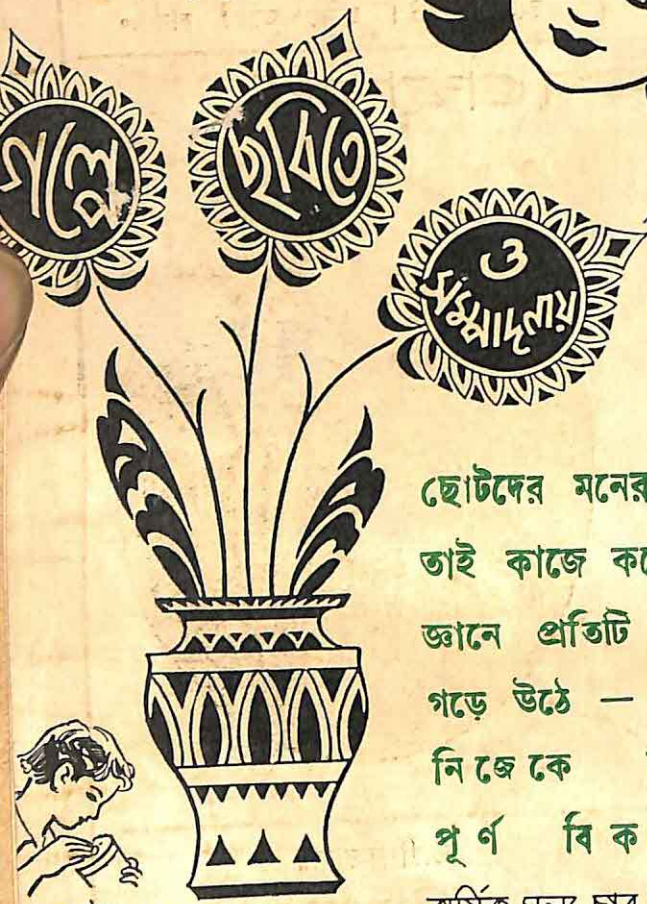 গল্পে
ছবিতে
ও
সম্পাদনায়
ছোটদের মনের
তাই কাজে
জ্ঞানে প্রতিটি
গড়ে উঠে —
নিজেকে
পূর্ণ বিক